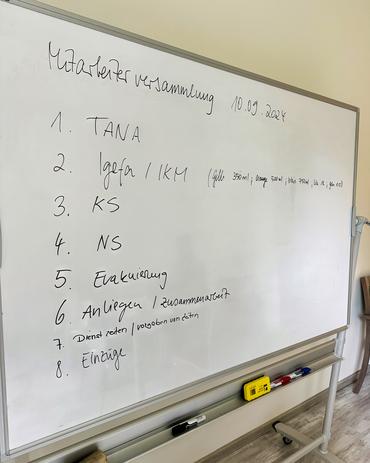 Mitarbeiterversammlung 10.09.2024
1. TANA
2. Igefa / IKM (gelb 350ml ; orange 500ml ;
3. KS
4. NS
5. Evakuierung
6. Anliegen / Zusammenarbeit
7. Dienstzeiten / vorgaben von Zeiten
8. Einzüge